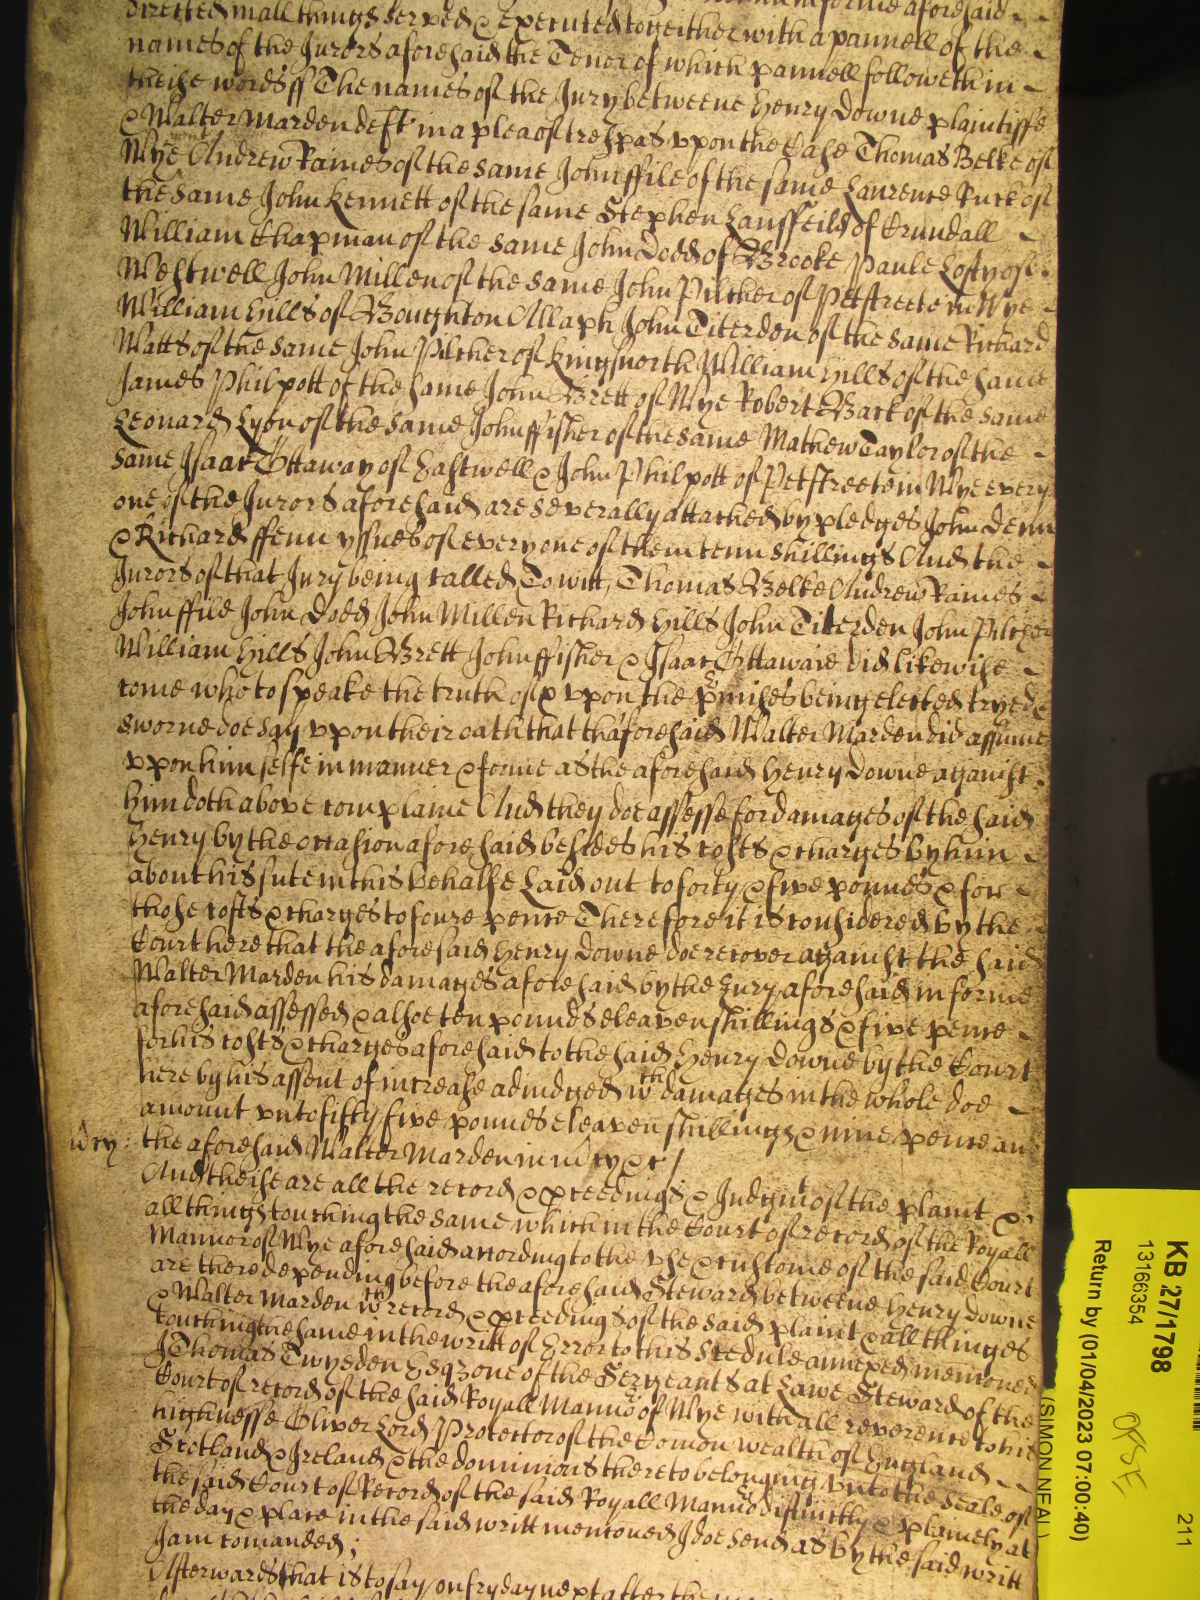 directed in all things served & executed together with a pannell of the
names of the Jurors aforesaid the Tenor of which pannell followeth in
theise words ff The names of the Jury betweene Henry Downe plaintiffe
& Walter Marden deft in a plea of trespas upon the Case Thomas Belke of
Wye Andrew Raines of the same John ffile of the same Laurence Ruck of
the same John Kennett of the same Stephen Lansfeild of Crundall
William Chapman of the same John Dodd of Brooke Paule Lofty of
Westwell John Millen of the same John Pilcher of Petstreete in Wye
William Hills of Boughton Allaph John Titerden of the same Richard
Watts of the same John Pilcher of Kingsnorth William Hills of the same
James Philpott of the same John Brett of Wye Robert Back of the same
Leonard Lyon of the same John ffisher of the same Mathew Taylor of the
same Isaac Ottaway of Eastwell & John Philpott of Petstreete in Wye every
one of the Jurors aforesaid are severally attached by pledges John Denn
& Richard ffenn yssues of every one of them tenn shillings And the
Jurors of that Jury being called To witt, Thomas Belke Andrew Raines
John ffile John Dodd John Millen Richard Hills John Titerden John Pilcher
William Hills John Brett John ffisher & Isaac Ottawaie did likewise
come who to speake the truth of & upon the pmises being elected tryed &
sworne doe say upon their oath that thaforesaid Walter Marden did assume
upon himselfe in manner & forme as the aforesaid Henry Downe against
him doth above complaine And they doe assesse for damages of the said
Henry by the occasion aforesaid besides his costs & charges by him
about his sute in this behalfe Laid out to forty & five pounds & for
those costs & charges to foure pence Therefore it is considered by the
Court here that the aforesaid Henry Downe doe recover against the said
Walter Marden his damages aforesaid by the Jury aforesaid in forme
aforesaid assessed & alsoe ten pounds eleaven shillings & five pence
for his costs & charges aforesaid to the said Henry Downe by the Court
here by his assent of increase adiudged wch damages in the whole doe
amount unto fifty five pounds eleaven shillings & nine pence and
m̃cy: the aforesaid Walter Marden in m̃cy &c /
And theise are all the record & pceedings & Judgmt of the plaint &
all things touching the same which in the Court of record of the Royall
Mannor of Wye aforesaid according to the use & custome of the said Court
are there depending before the aforesaid Steward betweene Henry Downe
& Walter Marden wch record & pceedings of the said plaint & all thinges
touching the same in the writt of Error to this scedule annexed mencioned
I Thomas Twysden Esqr one of the Sergeants at Lawe Steward of the
Court of record of the said Royall Mannor of Wye with all reverence to his
highnesse Oliver Lord Protector of the Comon wealth of England
Scotland & Ireland & the dominions thereto belonging unto the Seale of
the said Court of Record of the said Royall Mannor distinctly & plainely at
the day & place in the said writt mencioned I doe send as by the said writt
I am comanded;
Afterwards that is to say on fryday next after the
KB 27/1798
13166354
Return by (01/04/2023 07:00:40)
(SIMON NEAL)
211